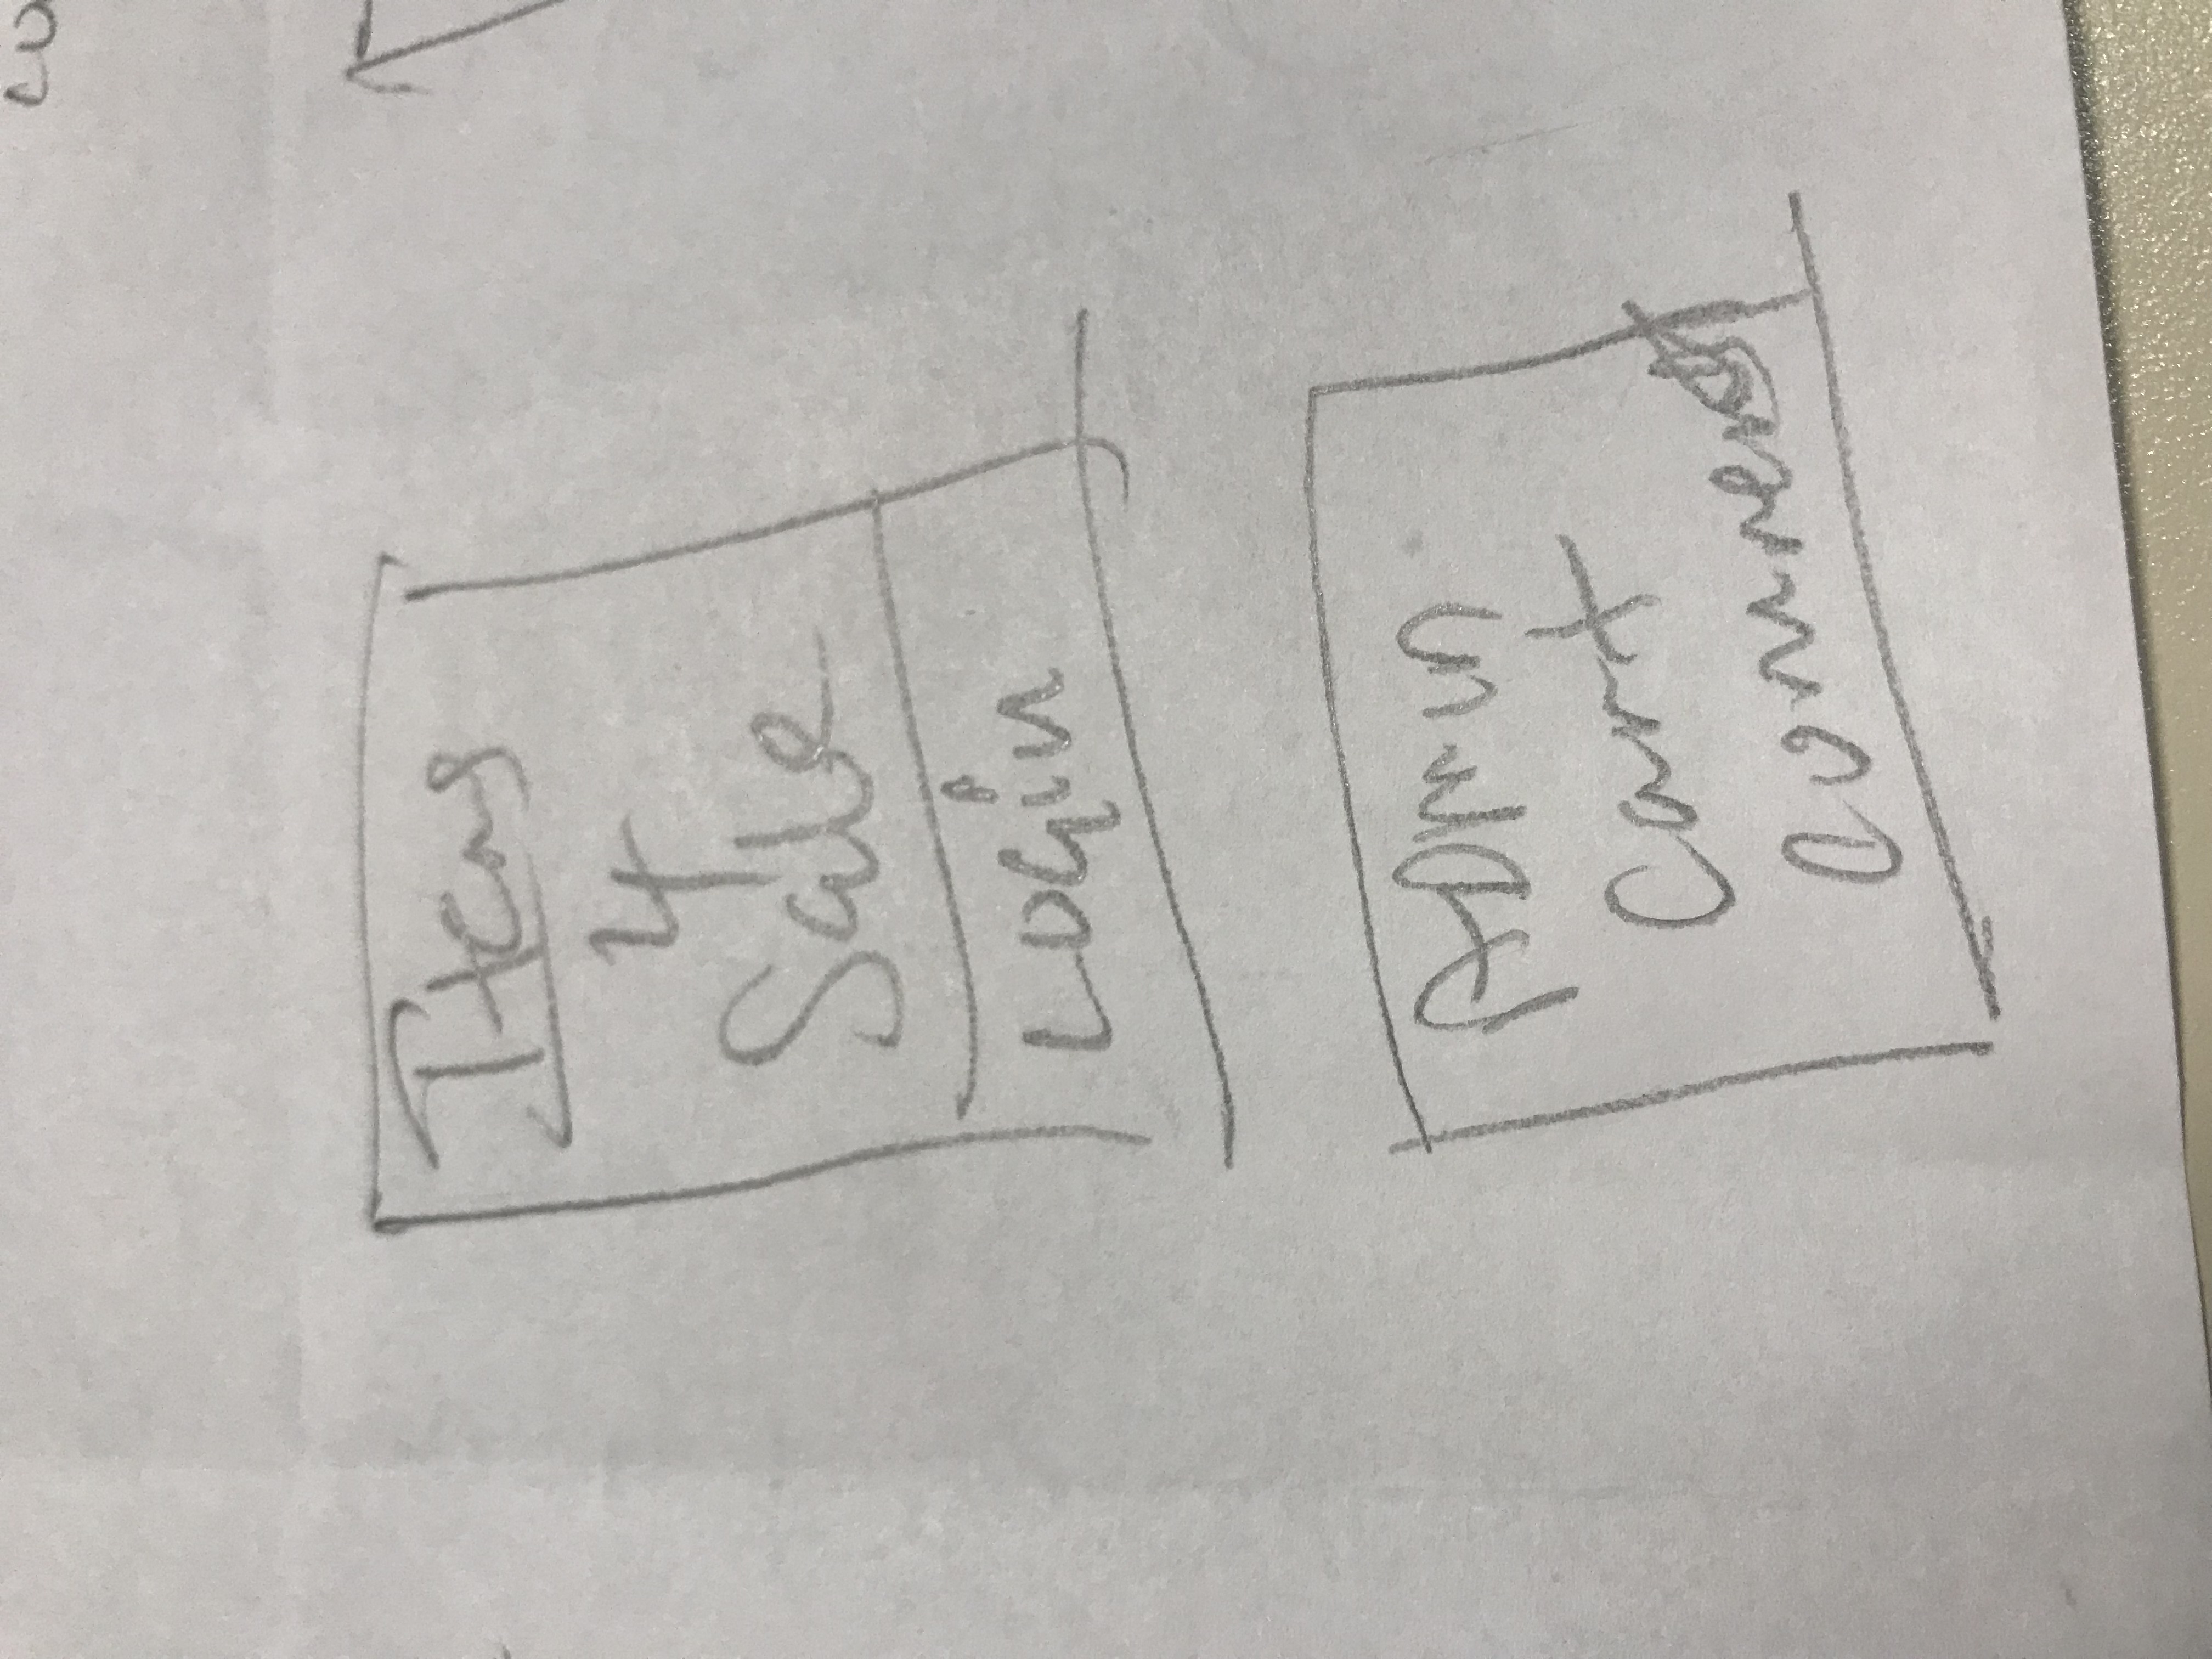 Items
4
Sale
Login
ADmin
Cart
Comment